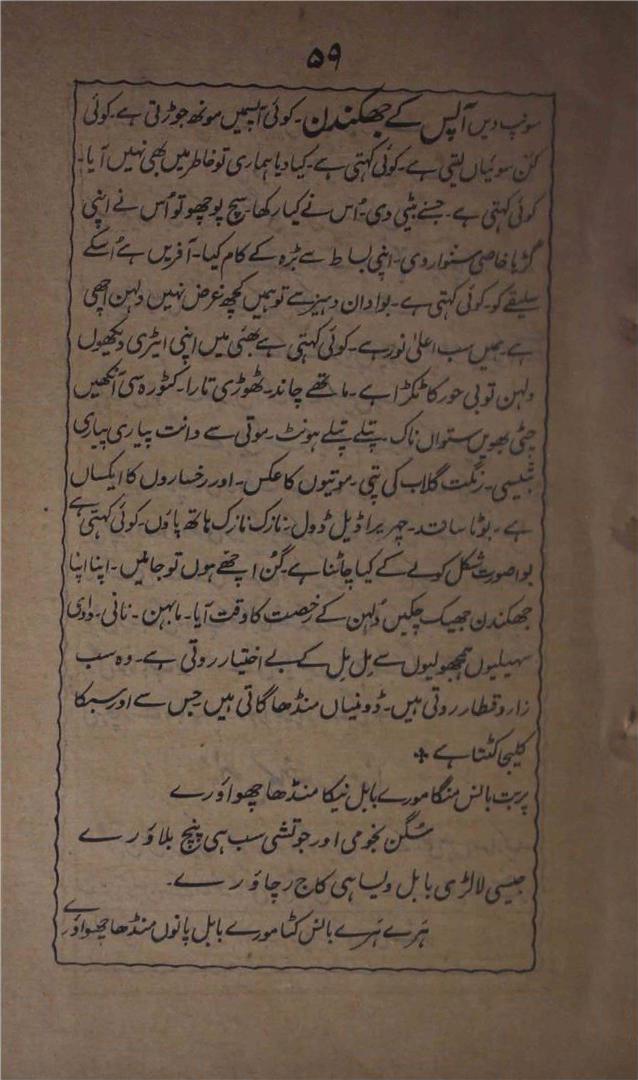 ۵۹
سونپ دیں آپس کے جھکندن۔ کوئی آپسمیں مونھ جوڑتی ہے۔ کوئی
کن سوئیاں لیتی ہے۔ کوئی کہتی ہے۔ کیا دیا ہماری تو خاطر میں بھی نہیں آیا۔
کوئی کہتی ہے۔ جسنے بیٹی دی۔ اُس نے کیا رکھا۔ سچ پوچھو تو اُس نے اپنی
گڑیا خاصی سنوار دی۔ اپنی بساط سے بڑہ کے کام کیا۔ آفریں ہے اُسکے
سلیقے کو۔ کوئی کہتی ہے۔ بوا دان دہیز سے تو ہمیں کچھ غرض نہیں دلہن اچھی
ہے۔ ہمیں سب اعلیٰ نور ہے۔ کوئی کہتی ہے بھئی میں اپنی ایڑی دیکھوں
دلہن تو بی حور کا ٹکڑا ہے۔ ماتھے چاند۔ ٹھوڑی تارا۔ کٹورہ سی آنکھیں
چٹی بھویں ستواں ناک۔ پتلے پتلے ہونٹ۔ موتی سے دانت پیاری پیاری
بتیسی۔ رنگت گلاب کی پتی۔ موتیوں کا عکس۔ اور رخساروں کا ایکساں
ہے۔ بوٹا سا قد۔ چہریرا ڈیل ڈول۔ نازک نازک ہاتھ پاؤں۔ کوئی کہتی ہے
بوا صورت شکل کو لے کے کیا چاٹنا ہے۔ گن اچھے ہوں تو جانیں۔ اپنا اپنا
جھکندن جھیک چکیں دُلہن کے رخصت کا وقت آیا۔ ما بہن۔ نانی۔ دادی
سہیلیوں ہمجولیوں سے مِل مِل کے بے اختیار روتی ہے۔ وہ سب
زار و قطار روتی ہیں۔ ڈومنیاں منڈھا گاتی ہیں جس سے اور سبکا
کلیجا کٹتا ہے
پربت بانس منگا مورے بابل نیکا منڈھا چھواؤ رے
سُگن نجومی اور جوتشی سب ہی پنچ بلاؤ رے
جیسی لالڑی بابل ویسا ہی کاج رچاؤ رے۔
ہَرے ہَرے بانس کٹا مورے بابل پانوں منڈھا چھواؤ رے